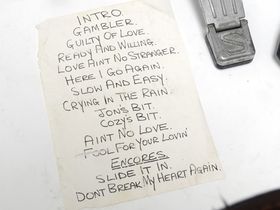 INTRO.
GAMBLER.
GUILTY OF LOVE.
READY AND WILLING.
LOVE AIN'T NO STRANGER.
HERE I GO AGAIN.
SLOW AND EASY.
CRYING IN THE RAIN.
JON'S BIT.
COZY'S BIT.
AIN'T NO LOVE.
FOOL FOR YOUR LOVIN'
ENCORES.
SLIDE IT IN.
DON'T BREAK MY HEART AGAIN.